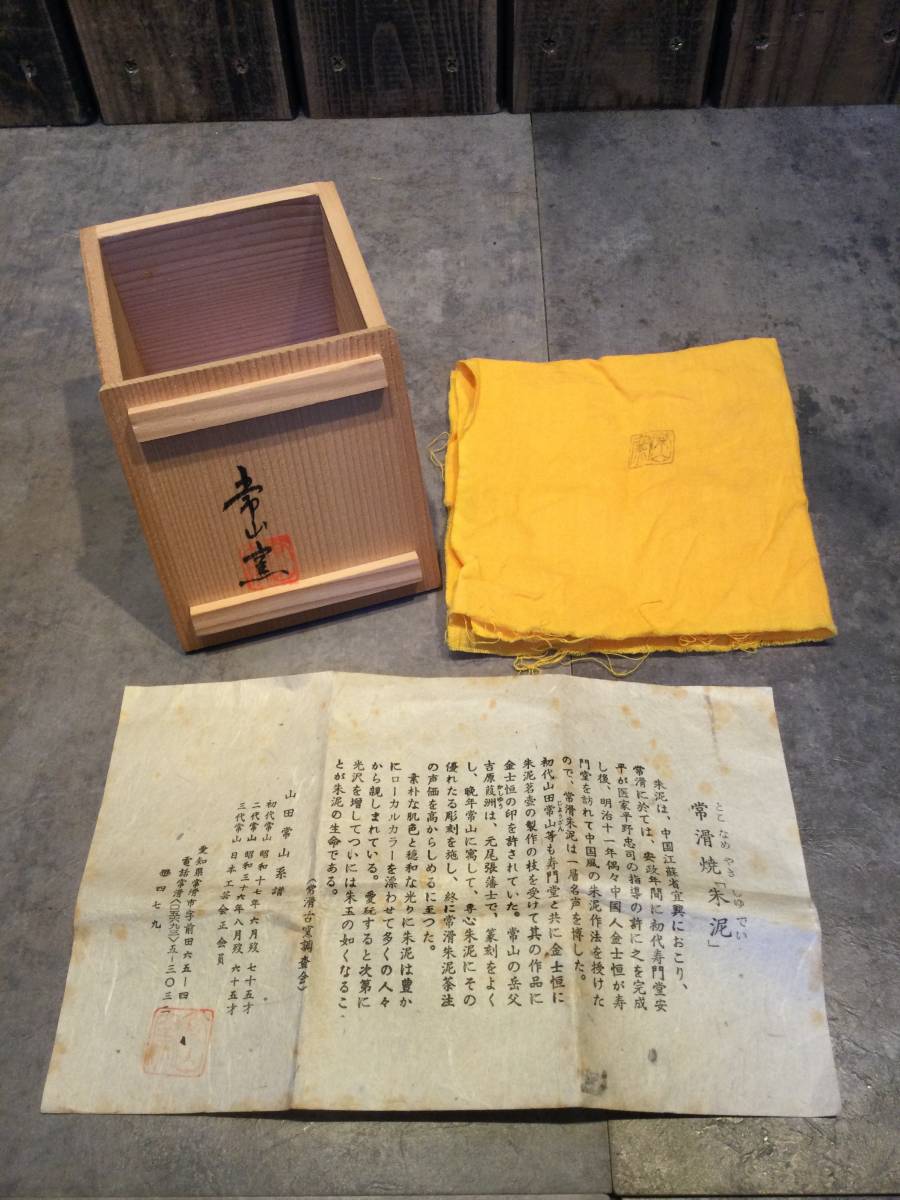 常山窯
常滑焼「朱泥」
とこなめやきしゅでい
朱泥は、中国江蘇省宜興におこり、
常滑に於ては、安政年間に初代寿門堂安
平が医家平野忠司の指導の許に之を完成
し後、明治十一年偶々中国人金士恒が寿
門堂を訪れて中国風の朱泥作法を授けた
ので、常滑朱泥は一層名声を博した。
初代山田常山等も寿門堂と共に金士恒に
じょうざん
朱泥茗壺の製作の技を受けて其の作品に
金士恒の印を許されていた。常山の岳父
吉原葭洲は、元尾張藩士で、篆刻をよく
かしゅう
し、晩年常山に寓して、専心朱泥にその
優れたる彫刻を施し、終に常滑朱泥茶注
の声価を高からしめるに至つた。
素朴な肌色と穏和な光りに朱泥は豊か
にローカルカラーを漂わせて多くの人々
から親しまれている。愛玩すると次第に
光沢を増してついには朱玉の如くなるこ
とが朱泥の生命である。
(常滑古窯調査会)
山田常山系譜
初代常山 昭和十七年六月歿 七十五才
二代常山 昭和三十六年八月歿 六十五才
三代常山 日本工芸会正会員
愛知県常滑市字前田六五ー四
電話常滑〈〇五六九三〉五ー三〇三一
四七九